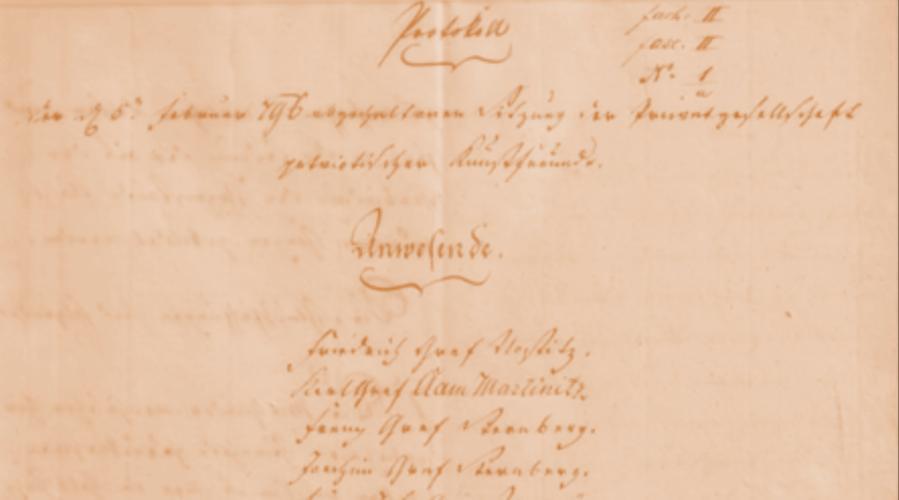 Protokoll
fach. II
fasc. II
N. 1
a
Der d 5. Februar 796 abgehaltenen Sitzung der Privatgesellschaft
patriotischer Kunstfreunde.
Anwesende.
Friedrich Graf Nostitz.
Karl Graf Clam Martinitz
Franz Graf Sternberg.
Joachim Graf Sternberg.